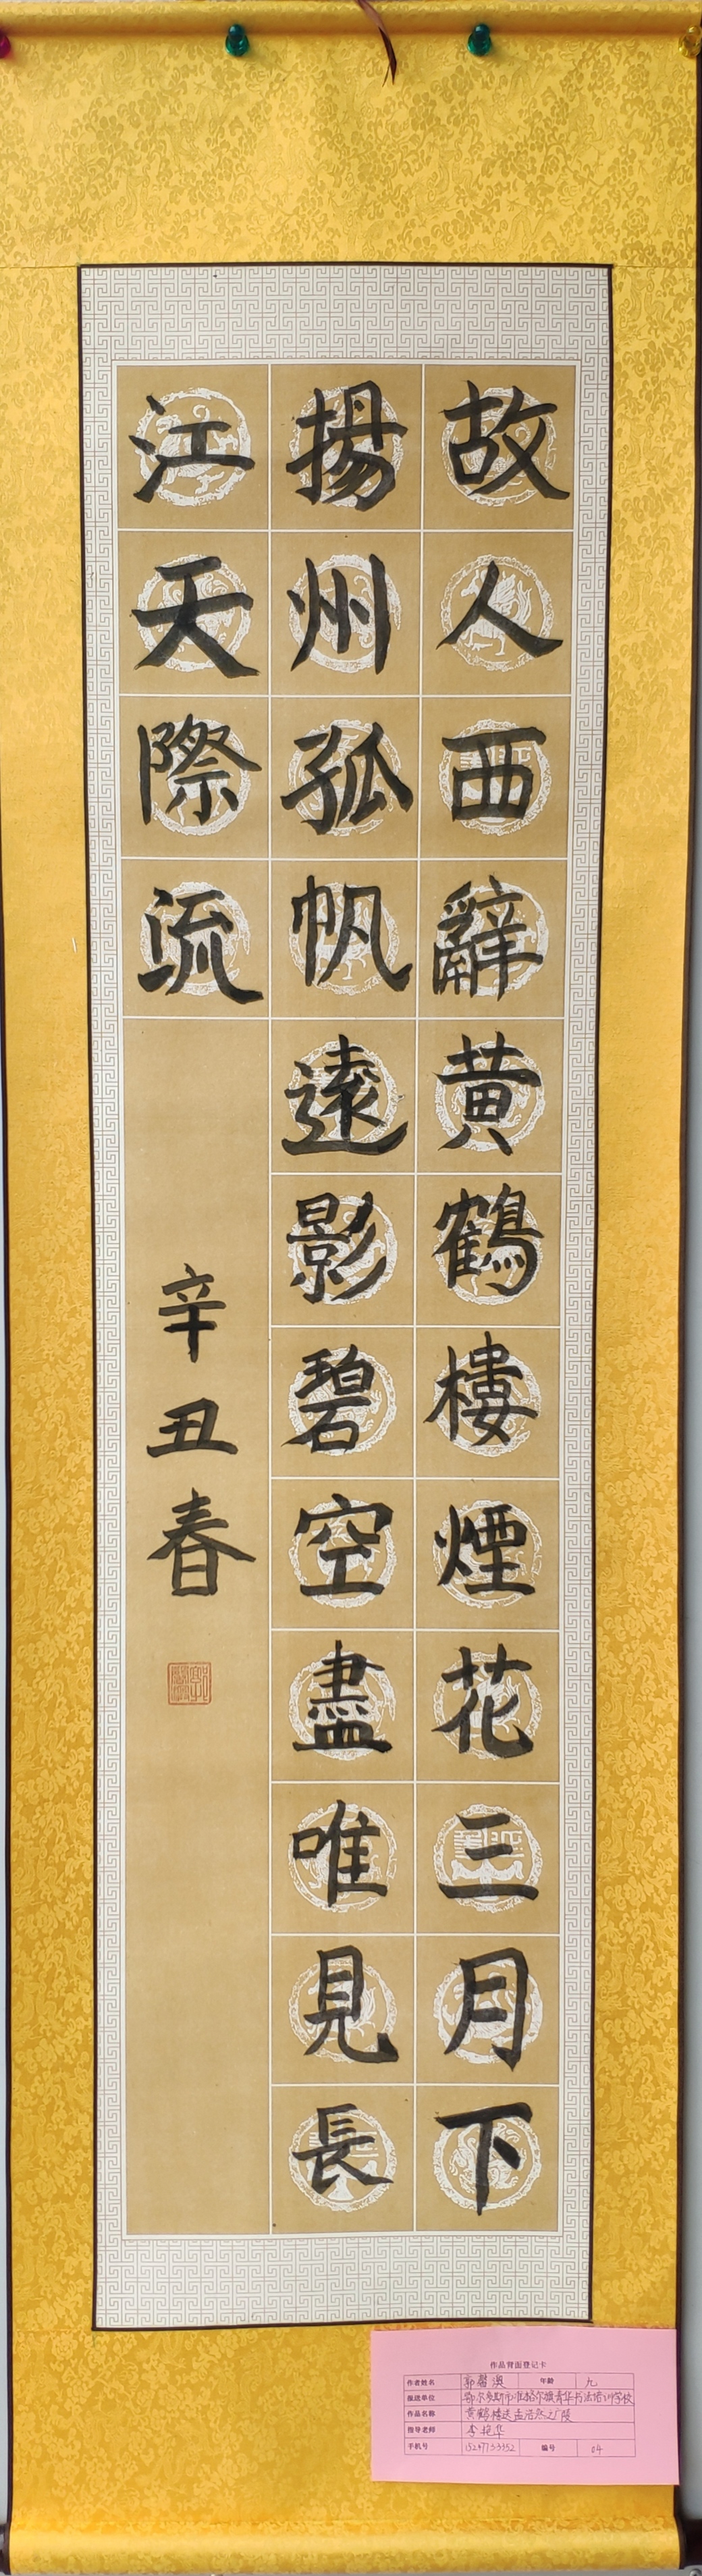 故人西辭黄鶴樓煙花三月下
揚州孤帆遠影碧空盡唯見長
江天際流
辛丑春
作品背面登记卡
作者姓名 郭馨澳 年龄 九
报送单位 鄂尔多斯市准格尔旗青华书法培训学校
作品名称 黄鹤楼送孟浩然之广陵
指导老师 李艳华
手机号 15247733352 编号 04